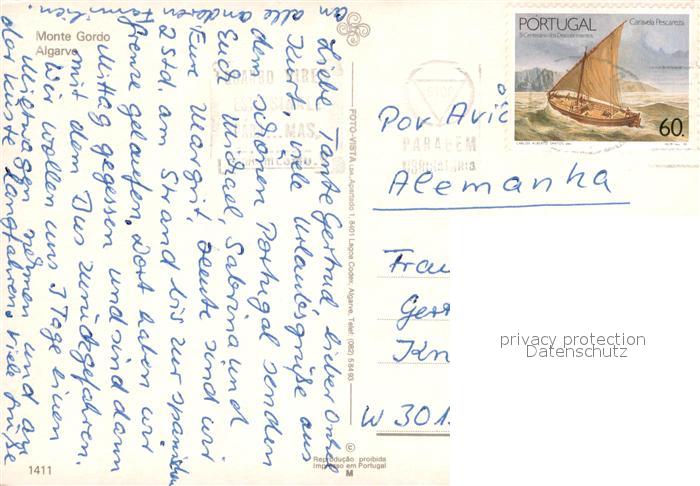 Monte Gordo
Algarve
Liebe Tante Gertrud, lieber Onkel
Kurt, viele Urlaubsgrüße aus
dem schönen Portugal senden
Euch Michael, Sabrina und
Eure Margrit. Heute sind wir
2 Std. am Strand bis zur spanischen
Grenze gelaufen, dort haben wir
Mittag gegessen und sind dann
mit dem Bus zurückgefahren.
Wir wollen uns 3 Tage einen
Mietwagen nehmen und an
der Küste langfahren. Viele Grüße
an alle anderen
Familien.
1411
FOTO-VISTA Lda. Apartado 1, 8401 Lagoa Codex, Algarve, Telef. (082) 5 84 93
©
Reprodução proibida
Impresso em Portugal
M
PORTUGAL
Caravela Pescareza
5 Centenário dos Descobrimentos
60.
CARLOS ALBERTO SANTOS
PARAGEM
Por Avi
Alemanha
Frau
Gert
Kn
W 301
privacy protection
Datenschutz